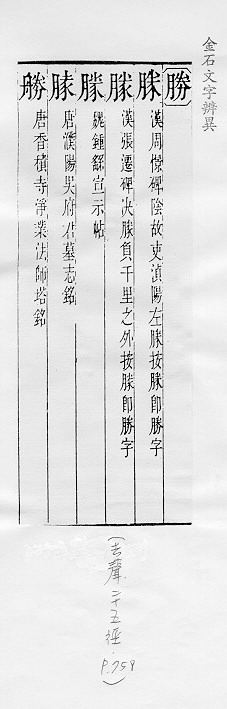 金石文字辨異
勝
𦩎漢周憬碑陰故吏滇陽左𦩎按𦩎即勝字
𦩎漢張遷碑決𦩎負千里之外按𦩎即勝字
魏鍾繇宣示帖
唐濮陽吳府君墓志銘
唐香積寺淨業法師塔銘
(去聲.二十五徑.
P.759)